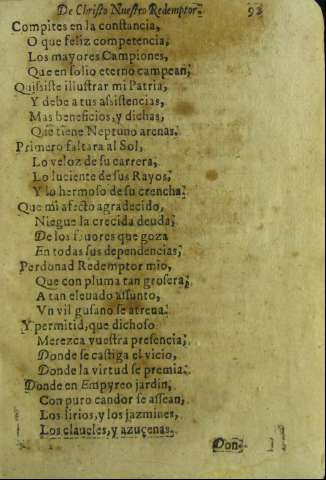 De Christo Nuestro Redemptor. 93
Compites en la constancia,
O que feliz competencia,
Los mayores Campiones,
Que en solio eterno campean;
Quisiste illustrar mi Patria,
Y debe a tus assistencias,
Mas beneficios, y dichas,
Que tiene Neptuno arenas.
Primero faltara al Sol,
Lo veloz de su carrera,
Lo luciente de sus Rayos,
Y lo hermoso de su crencha.
Que mi afecto agradecido,
Niegue la crecida deuda,
De los fauores que goza
En todas sus dependencias;
Perdonad Redemptor mio,
Que con pluma tan grosera,
A tan eleuado assunto,
Vn vil gusano se atreua.
Y permitid, que dichoso
Merezca vuestra presencia,
Donde se castiga el vicio,
Donde la virtud se premia.
Donde en Empyreo jardin,
Con puro candor se assean,
Los lirios, y los jazmines,
Los claueles, y azuçenas.
Don-